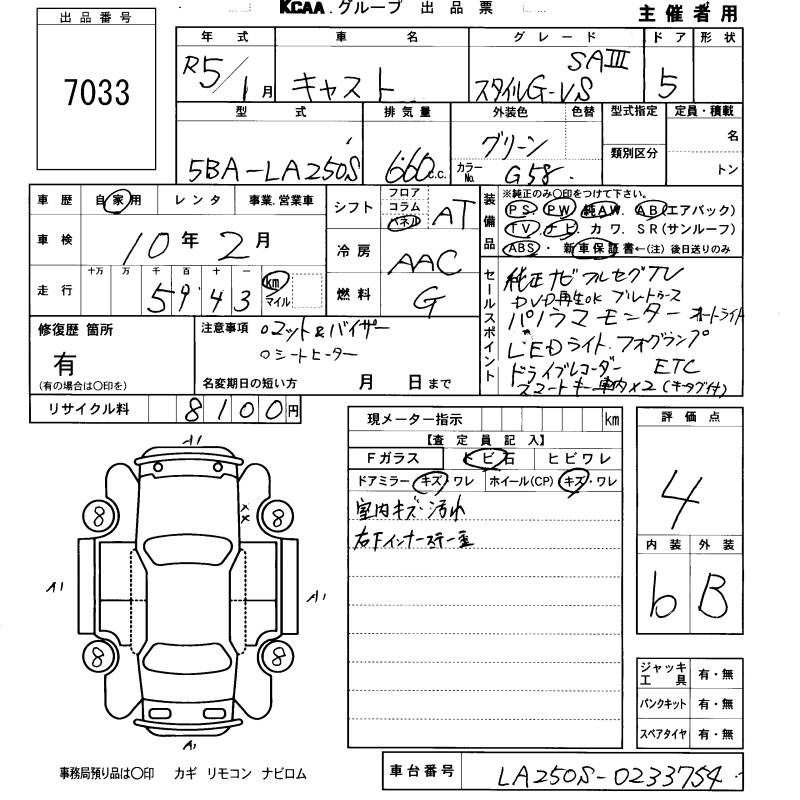 KCAA グループ 出品票
主催者用
出品番号
7033
年式 車名 グレード ドア 形状
R5/1月 キャスト スタイルG-VS SAIII 5
型式 排気量 外装色 色替 型式指定 定員・積載
5BA-LA250S 660c.c. グリーン 類別区分 名
カラーNo. G58 トン
車歴 自家用 レンタ 事業.営業車
車検 10年2月
走行 十万 万 千 百 十 一
5943 km マイル
シフト フロア コラム パネル AT
冷房 AAC
燃料 G
装備品
※純正のみ○印をつけて下さい。
PS. PW. 純AW. AB(エアバック)
TV. ナビ. カワ. SR(サンルーフ)
ABS・新車保証書←(注)後日送りのみ
セールスポイント
純正ナビ フルセグTV
DVD再生OK ブルートゥース
パノラマモニター オートライト
LEDライト.フォグランプ
ドライブレコーダー ETC
スマートキー車内×2(キータグ付)
修復歴 箇所
有
(有の場合は○印を)
注意事項 ○マット&バイザー
○シートヒーター
名変期日の短い方 月 日まで
リサイクル料 8100円
現メーター指示 km
【査定員記入】
Fガラス トビ石 ヒビワレ
ドアミラー キズ・ワレ ホイール(CP) キズ・ワレ
室内キズ・汚れ
右Fインナーステー歪
評価点
4
内装 外装
b B
A1
8 8
A1 A1
8 8
A1
ジャッキ工具 有・無
パンクキット 有・無
スペアタイヤ 有・無
事務局預り品は○印 カギ リモコン ナビロム
車台番号 LA250S-0233754